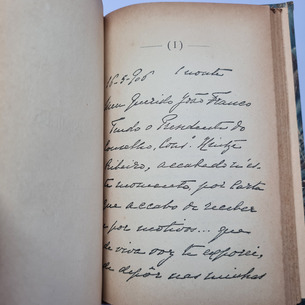 (1)
16-5-906 1 noute
Meu Querido João Franco
Tendo o Presidente do
Conselho, Cons.º Hintze
Ribeiro, acabado n'es-
te momento, por carta
que acabo de receber
e por motivos... que
de viva voz te exporei,
de depôr nas minhas